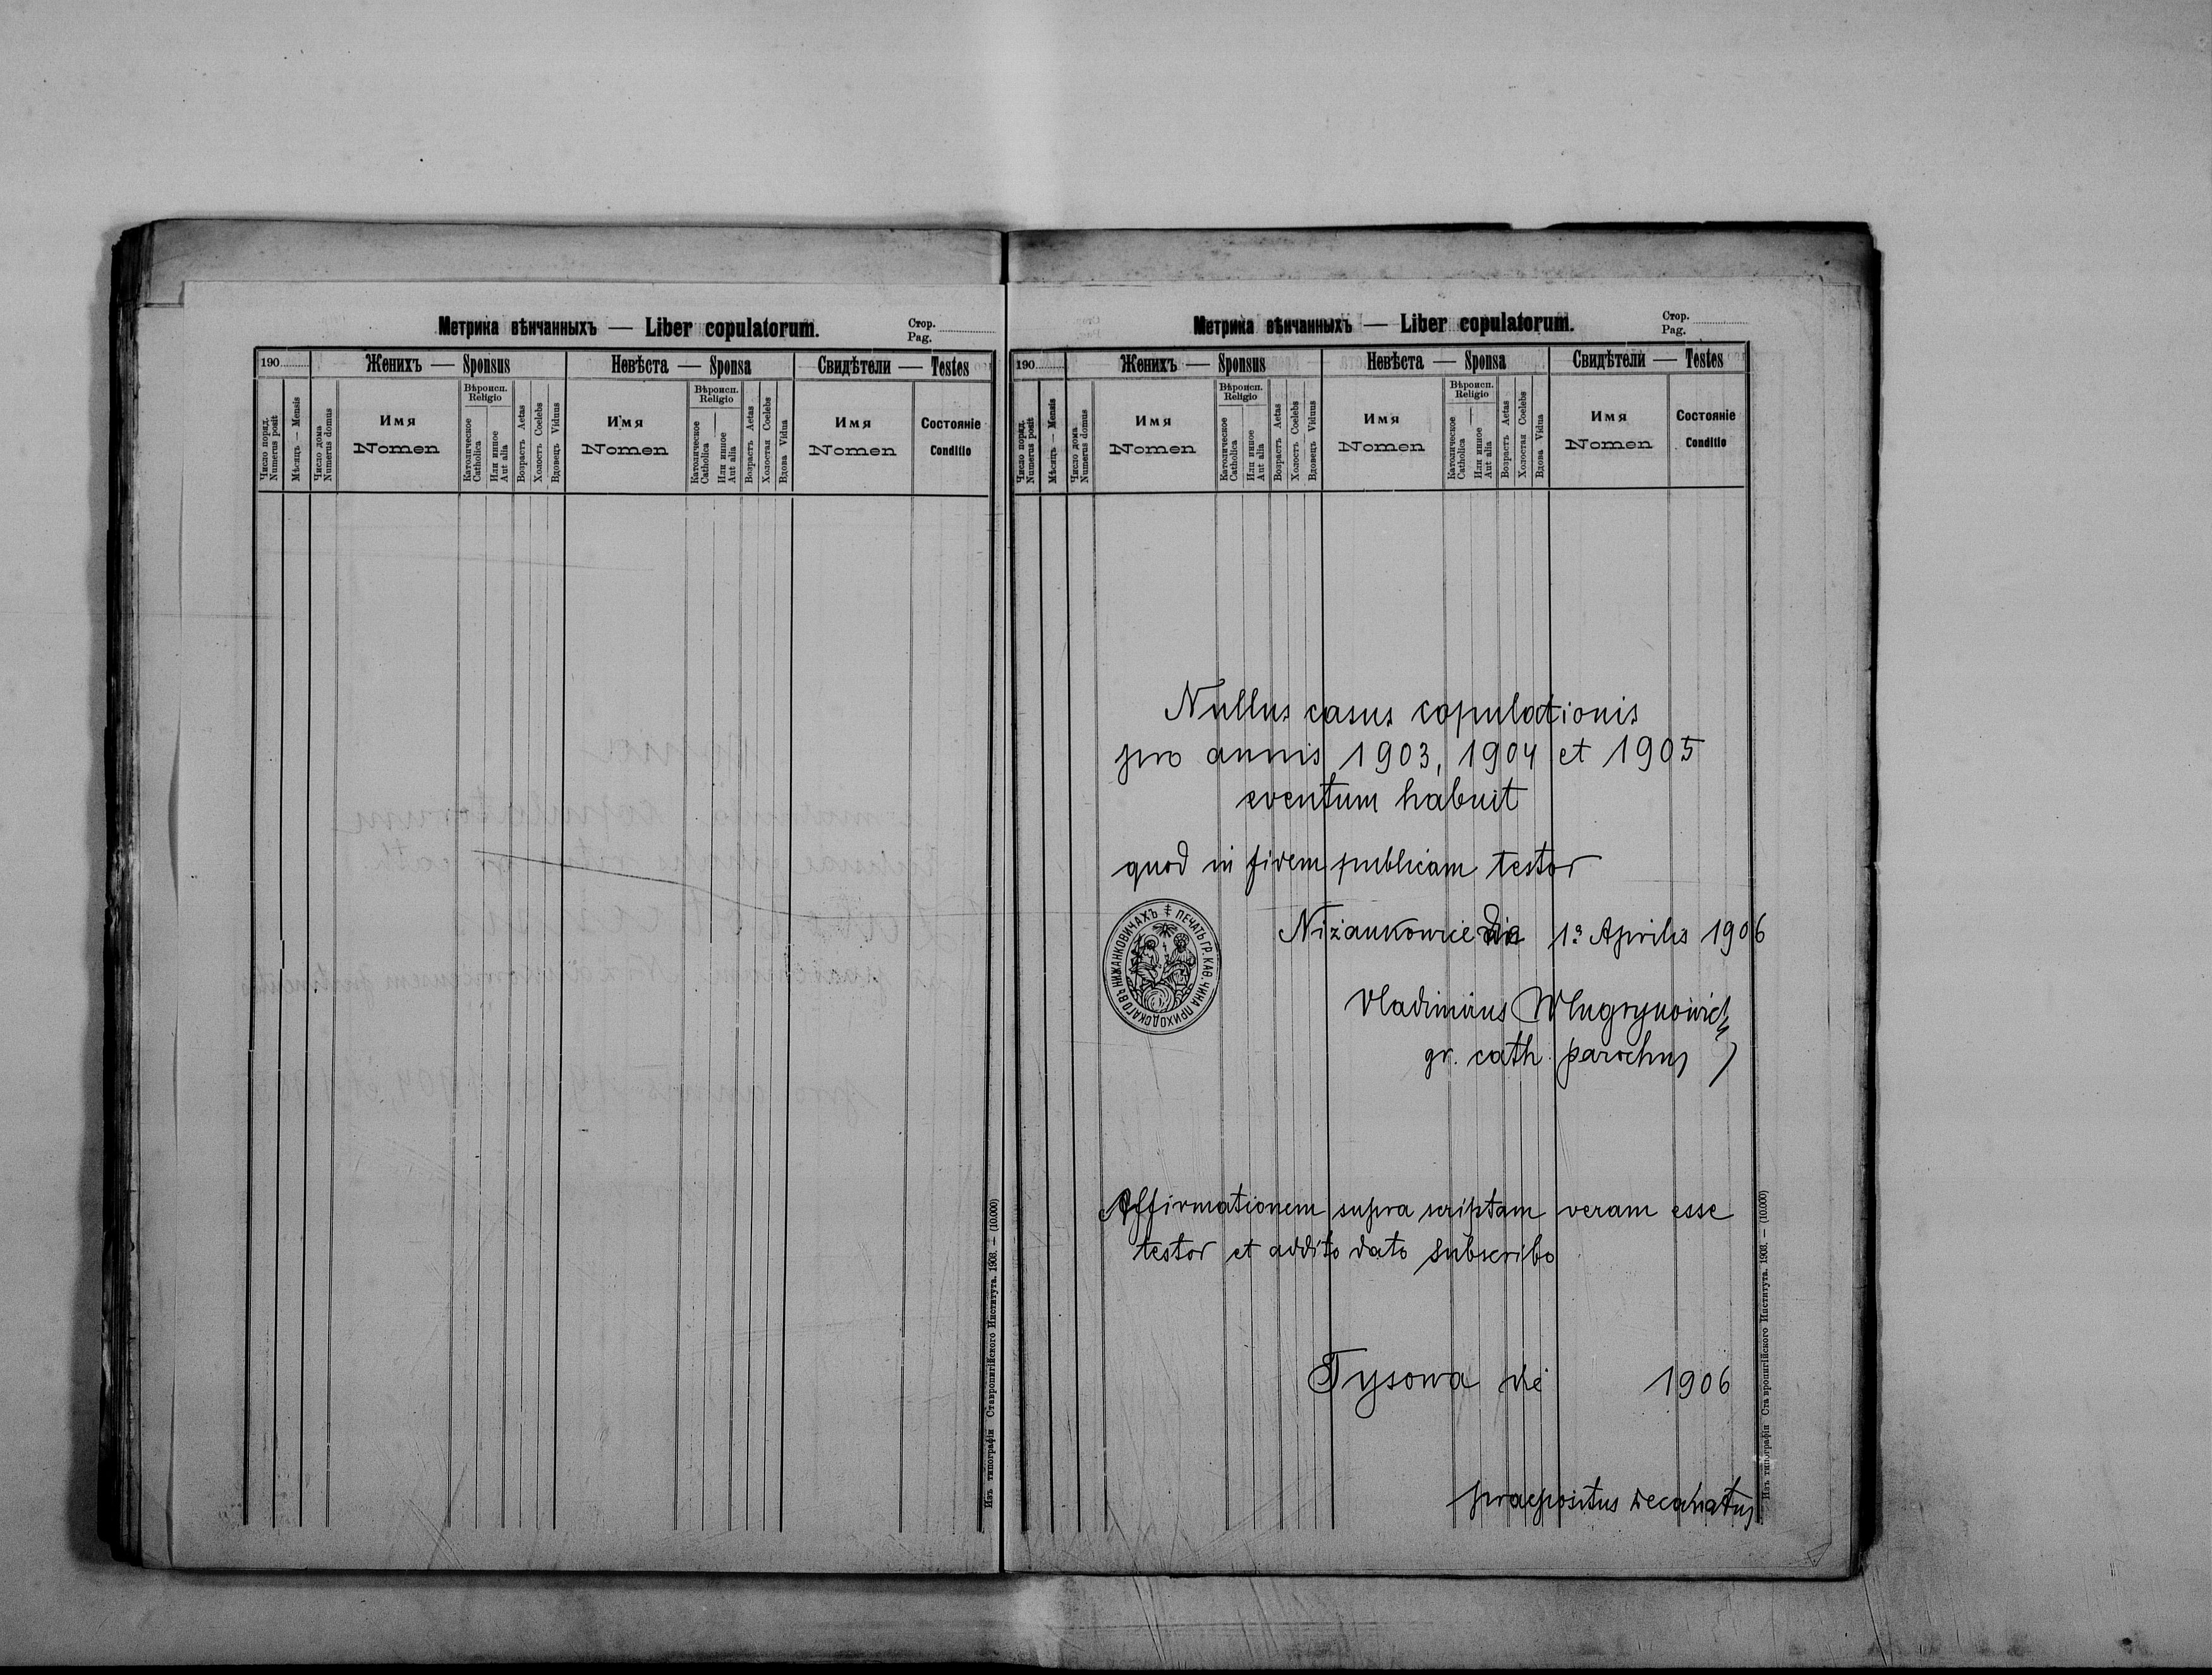 Метрика вѣнчанныхъ — Liber copulatorum.
Стор.
Pag.
190
Женихъ — Sponsus
Невѣста — Sponsa
Свидѣтели — Testes
Число поряд.
Numerus posit
Мѣсяць — Mensis
Число дома
Numerus domus
Имя
Nomen
Вѣроисп.
Religio
Католическое
Catholica
Или инное
Aut alia
Возрастъ Aetas
Холостъ Coelebs
Вдовецъ Viduus
Имя
Nomen
Вѣроисп.
Religio
Католическое
Catholica
Или инное
Aut alia
Возрастъ Aetas
Холостая Coelebs
Вдова Vidua
Имя
Nomen
Состояніе
Conditio
Изъ типографіи Ставропигійского Института. 1903. — (10.000)
Метрика вѣнчанныхъ — Liber copulatorum.
Стор.
Pag.
190
Женихъ — Sponsus
Невѣста — Sponsa
Свидѣтели — Testes
Число поряд.
Numerus posit
Мѣсяць — Mensis
Число дома
Numerus domus
Имя
Nomen
Вѣроисп.
Religio
Католическое
Catholica
Или инное
Aut alia
Возрастъ Aetas
Холостъ Coelebs
Вдовецъ Viduus
Имя
Nomen
Вѣроисп.
Religio
Католическое
Catholica
Или инное
Aut alia
Возрастъ Aetas
Холостая Coelebs
Вдова Vidua
Имя
Nomen
Состояніе
Conditio
Nullus casus copulationis
pro annis 1903, 1904 et 1905
eventum habuit
quod in fidem publicam testor
ПЕЧАТЬ ГР. КАѲ. ЧИНА ПРИХОДСКАГО ВЪ НИЖАНКОВИЧАХЪ
Niżankowice die 1a Aprilis 1906
Vladimirus
gr. cath. parochus
Affirmationem supra scriptam veram esse
testor et addito dato subscribo
Tysowa die 1906
praepositus decanatus
Изъ типографіи Ставропигійского Института. 1903. — (10.000)